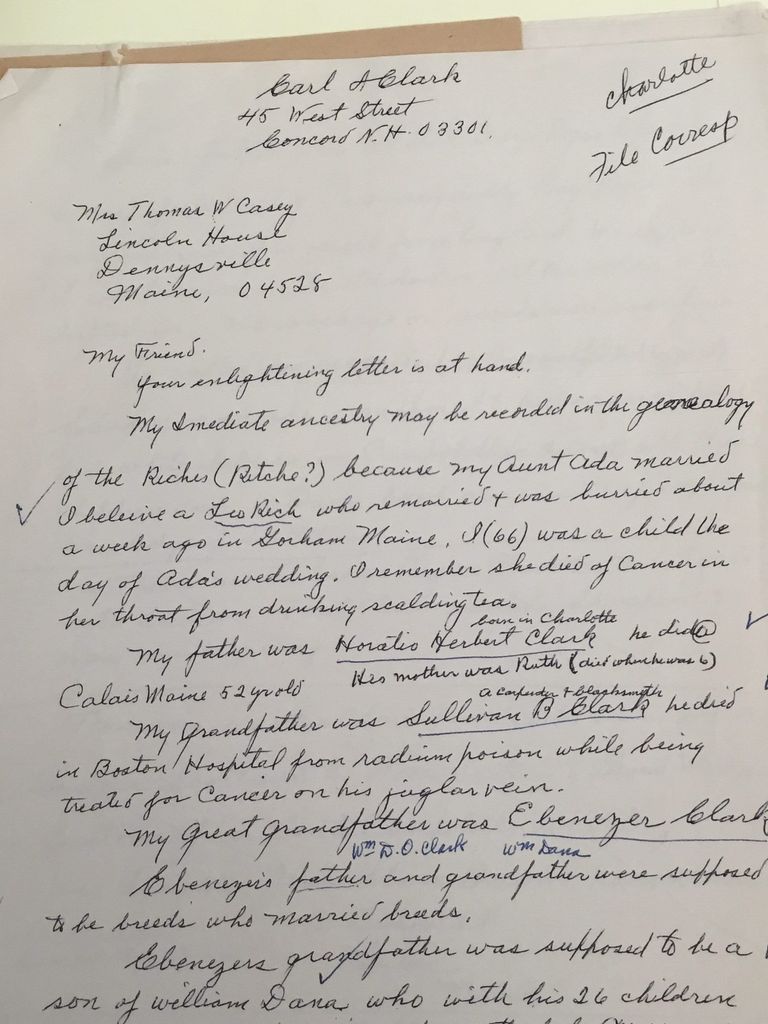 Carl A Clark
45 West Street
Concord N.H. 03301,
Charlotte
File Corresp
Mrs Thomas W Casey
Lincoln House
Dennysville
Maine, 04528
My Friend.
Your enlightining letter is at hand.
My Imediate ancestry may be recorded in the genealogy
of the Riches (Ritche?) because my Aunt Ada married
I beleive a Leo Rich who remarried + was burried about
a week ago in Gorham Maine. I (66) was a child the
day of Ada's wedding. I remember she died of Cancer in
her throat from drinking scalding tea.
born in Charlotte
My father was Horatio Herbert Clark he died @
His mother was Ruth (died when he was 6)
Calais Maine 52 yr old
a carpenter + blacksmith
My grandfather was Sullivan B Clark he died
in Boston Hospital from radium poison while being
treated for Cancer on his juglar vein.
My great grandfather was Ebenezer Clark
Wm D.O. Clark Wm Dana
Ebenezers father and grandfather were supposed
to be breeds who married breeds.
Ebenezers grandfather was supposed to be a
son of William Dana who with his 26 children